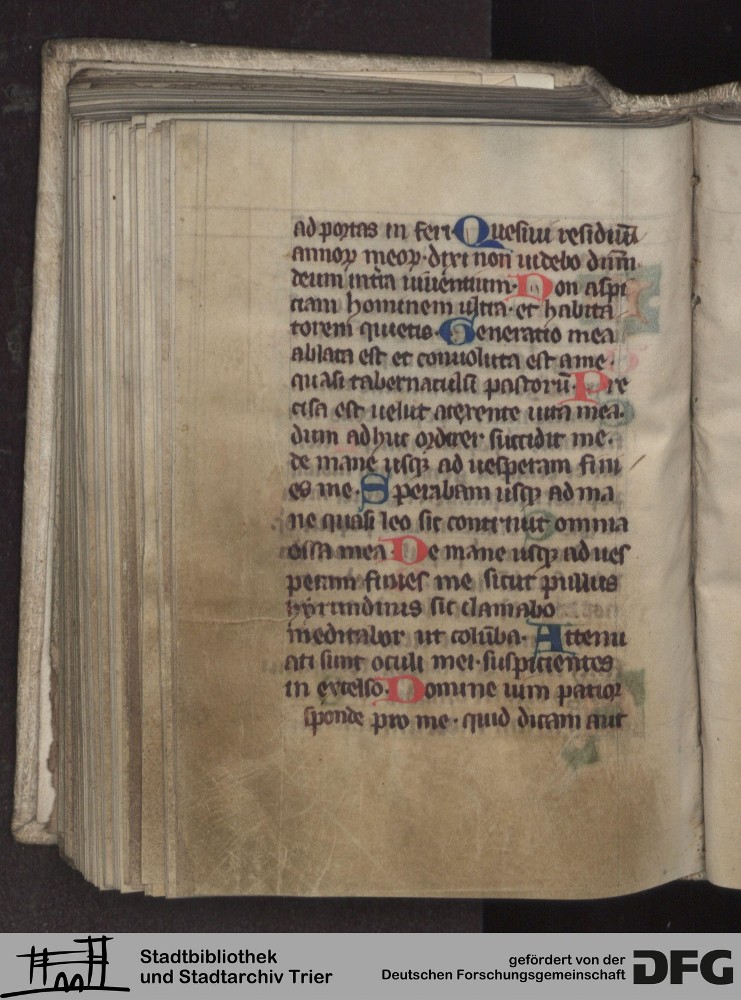 ad portas in feri· Quesiui residuū
annoꝝ meoꝝ· dixi non uidebo dūm
deum in tra uiuentium· Non aspi
ciam hominem ultra· et habita
torem quietis· Generatio mea
ablata est et conuoluta est a me·
quasi tabernaculū pastorū· Pre
cisa est uelut a texente uita mea·
dum adhuc ordirer succidit me·
de mane usqꝫ ad uesperam fini
es me· Sperabam usqꝫ ad ma
ne quasi leo sic contriuit omnia
ossa mea· De mane usqꝫ ad ues
peram finies me sicut pullus
hyrundinis sic clamabo
meditabor ut colūba· Attenu
ati sunt oculi mei· suspicientes
in excelso· Domine uim patior
sponde pro me· quid dicam aut
Stadtbibliothek
und Stadtarchiv Trier
gefördert von der
Deutschen Forschungsgemeinschaft
DFG